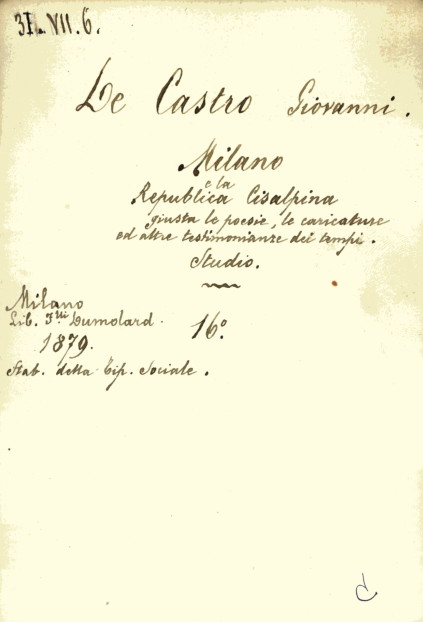 31. VII. 6.
De Castro Giovanni.
Milano
e la
Republica Cisalpina
giusta le poesie, le caricature
ed altre testimonianze dei tempi.
Studio.
Milano
Lib. F.lli Dumolard.
16º.
1879.
Stab. della Tip. Sociale.